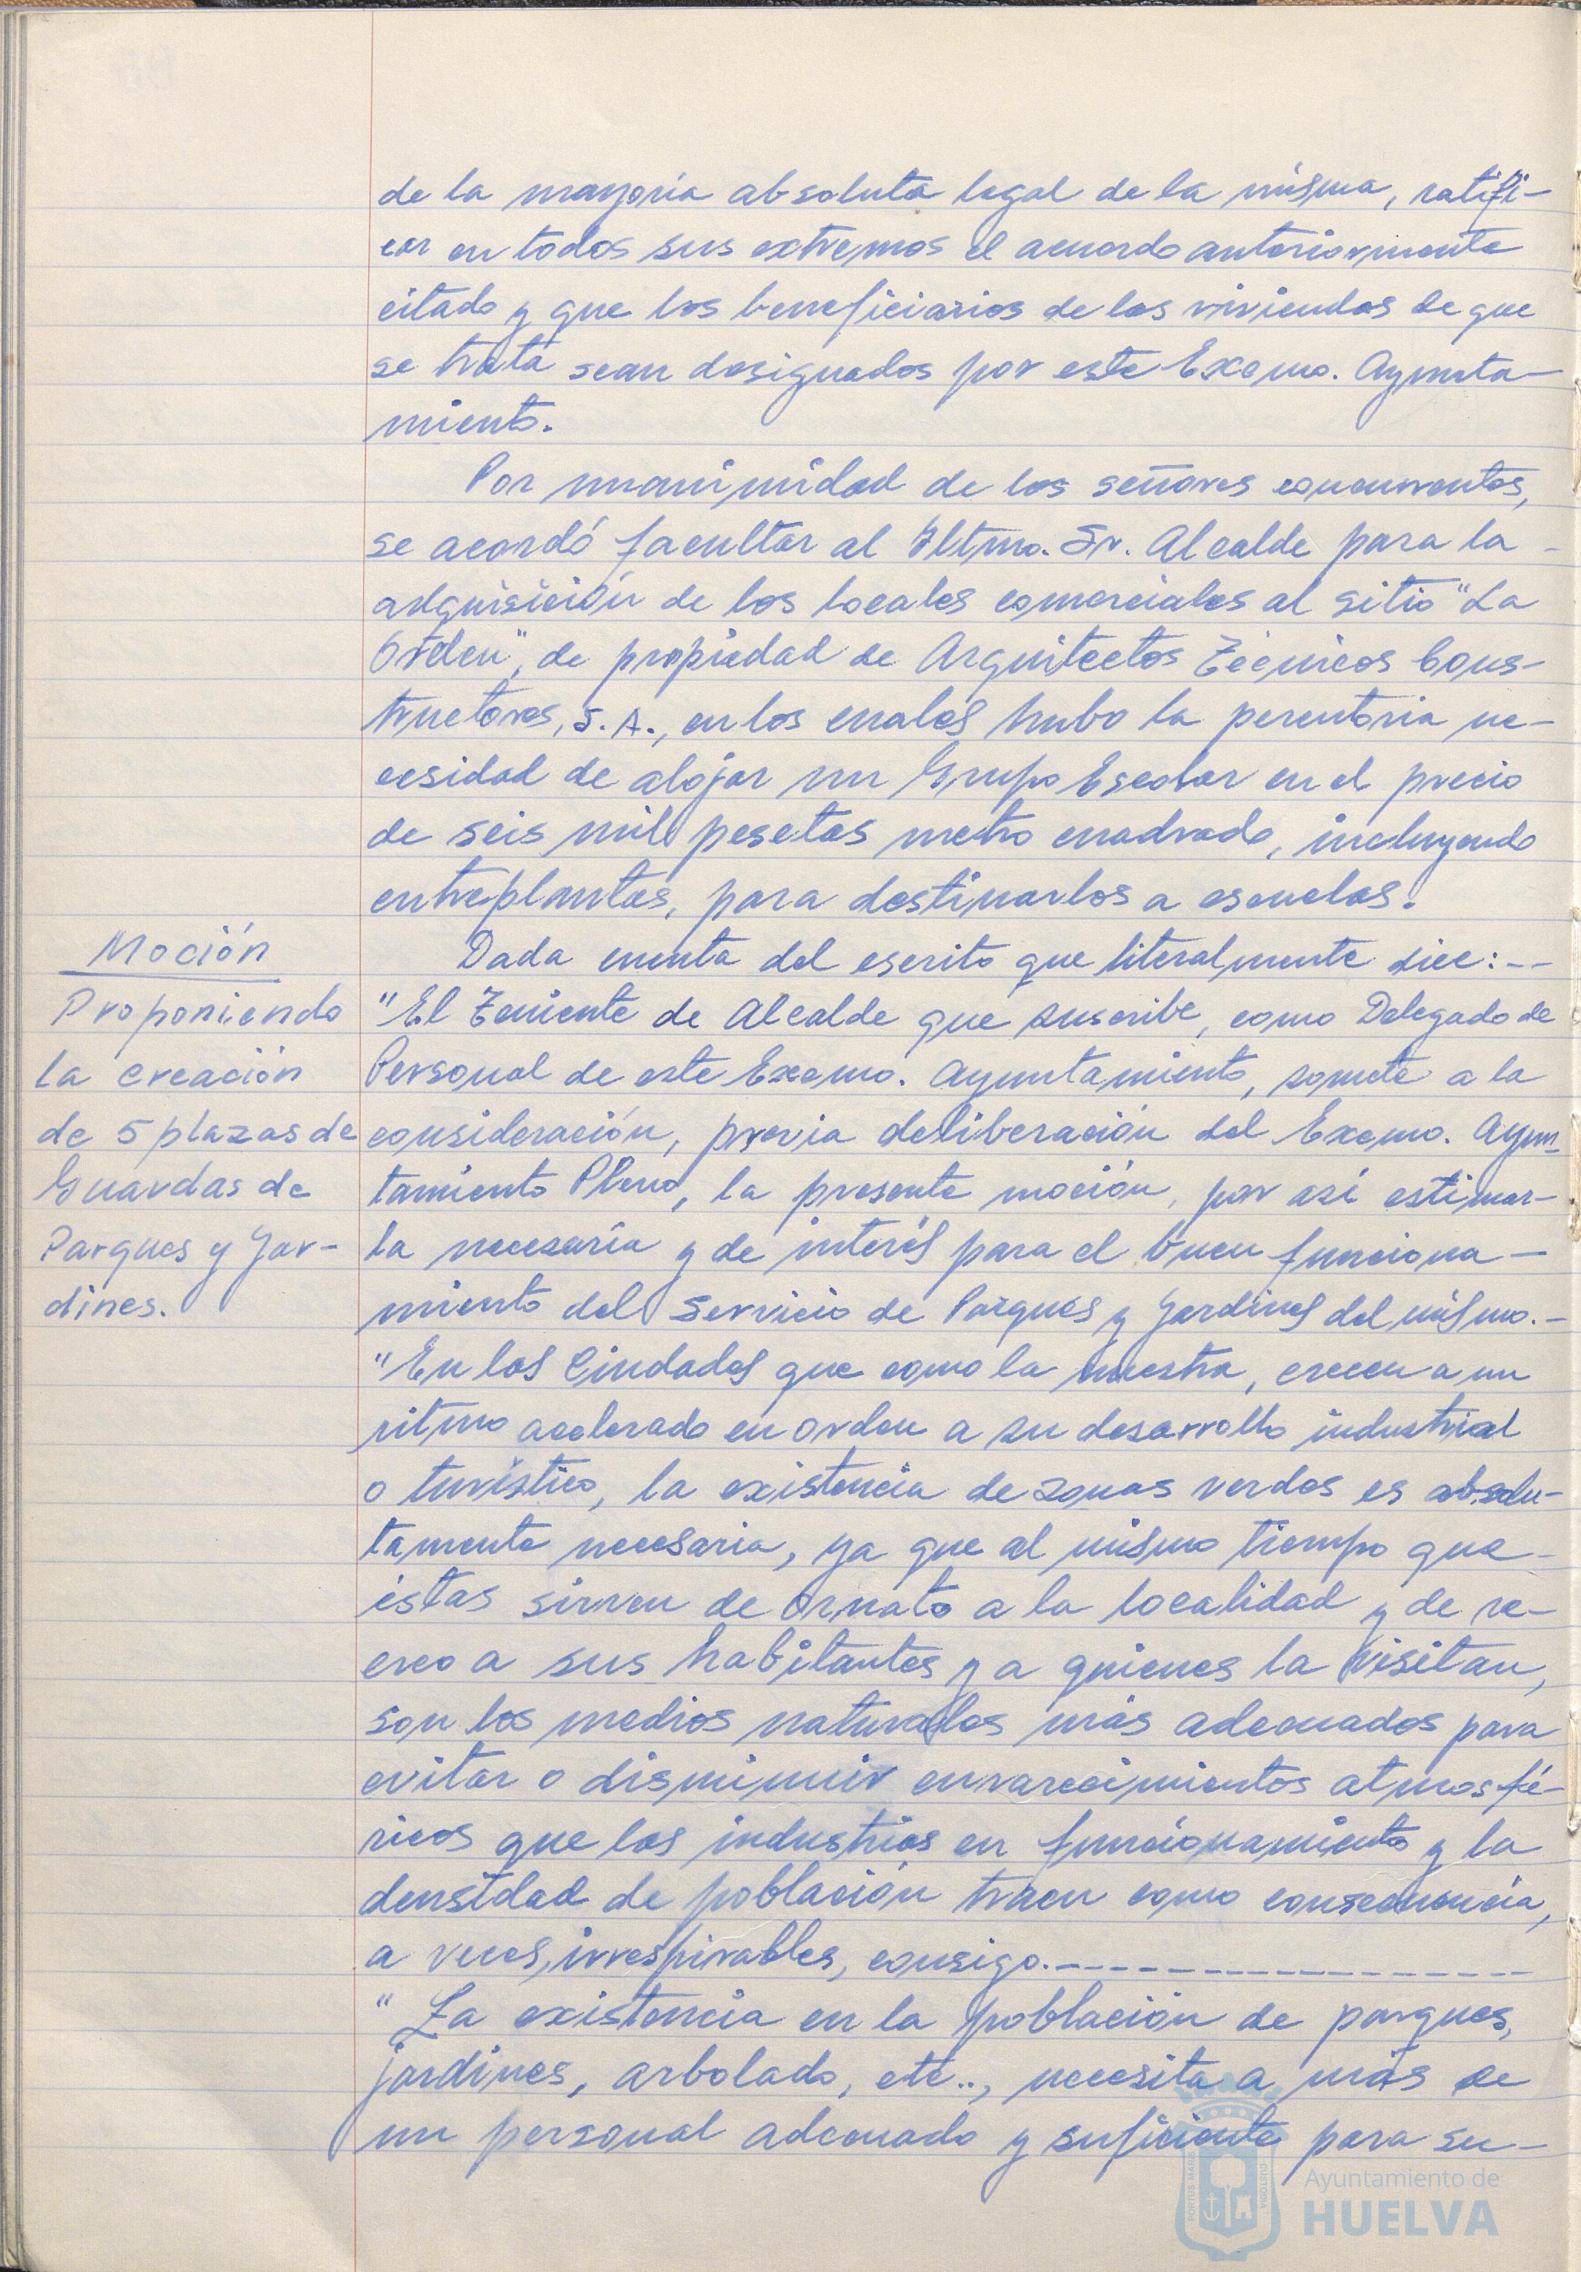 de la mayoría absoluta legal de la misma, ratifi-
car en todos sus extremos el acuerdo anteriormente
citado y que los beneficiarios de las viviendas de que
se trata sean designados por este Excmo. Ayunta-
miento.
Por unanimidad de los señores concurrentes,
se acordó facultar al Iltmo. Sr. Alcalde para la
adquisición de los locales comerciales al sitio "La
Orden", de propiedad de Arquitectos Técnicos Cons-
tructores, S.A., en los cuales hubo la perentoria ne-
cesidad de alojar un Grupo Escolar en el precio
de seis mil pesetas metro cuadrado, incluyendo
entreplantas, para destinarlos a escuelas.
Moción
Proponiendo
la creación
de 5 plazas de
Guardas de
Parques y Jar-
dines.
Dada cuenta del escrito que literalmente dice:--
"El Teniente de Alcalde que suscribe, como Delegado de
Personal de este Excmo. Ayuntamiento, somete a la
consideración, previa deliberación del Excmo. Ayun-
tamiento Pleno, la presente moción, por así estimar-
la necesaria y de interés para el buen funciona-
miento del Servicio de Parques y Jardines del mismo.-
"En las Ciudades que como la nuestra, crecen a un
ritmo acelerado en orden a su desarrollo industrial
o turístico, la existencia de zonas verdes es absolu-
tamente necesaria, ya que al mismo tiempo que
éstas sirven de ornato a la localidad y de re-
creo a sus habitantes y a quienes la visitan,
son los medios naturales más adecuados para
evitar o disminuir enrarecimientos atmosfé-
ricos que las industrias en funcionamiento y la
densidad de población traen como consecuencia,
a veces, irrespirables, consigo.------------------
"La existencia en la población de parques,
jardines, arbolado, etc.., necesita a más de
un personal adecuado y suficiente para su-
PORTUS MARIS
CUSTODIA
Ayuntamiento de
HUELVA